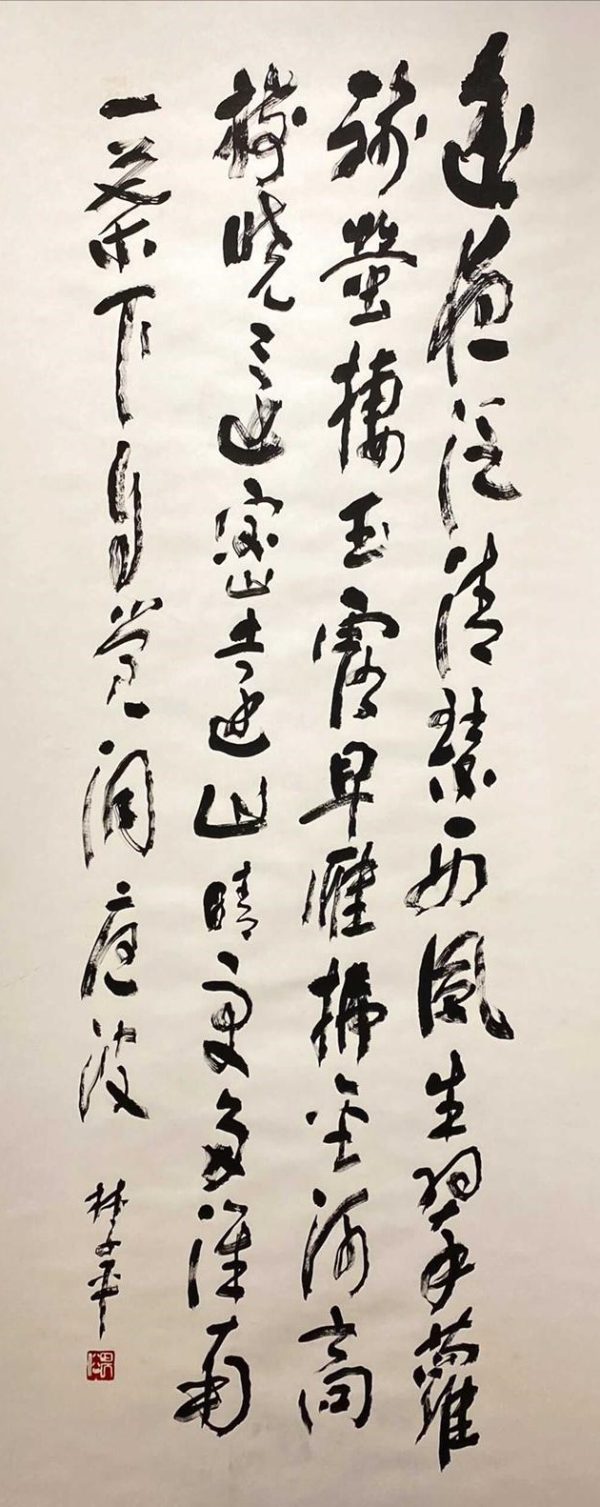 遥夜泛清瑟西風生翠蘿
殘螢棲玉露早雁拂金河高
樹曉還密遠山晴更多淮南
一葉下自覺洞庭波
林子平